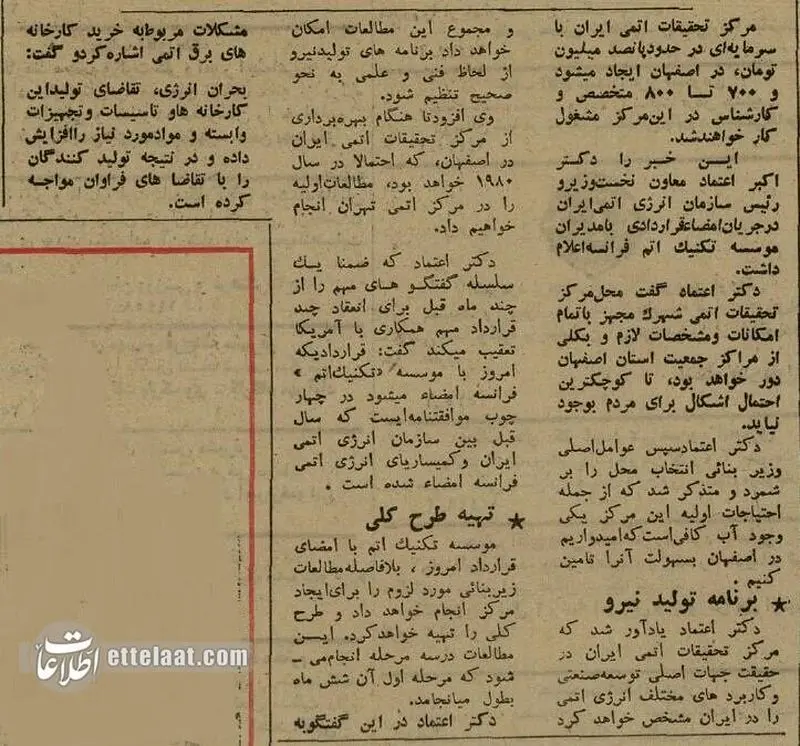 مرکز تحقیقات اتمی ایران با
سرمایه‌ای در حدود پانصد میلیون
تومان، در اصفهان ایجاد میشود
و ۷۰۰ تا ۸۰۰ متخصص و
کارشناس در این‌مرکز مشغول
کار خواهندشد.
این خبر را دکتر
اکبر اعتماد معاون نخست‌وزیرو
رئیس سازمان انرژی اتمی‌ایران
درجریان‌امضاءقراردادی بامدیران
موسسه تکنیك اتم فرانسه‌اعلام
داشت.
دکتر اعتماد گفت محل‌مرکز
تحقیقات اتمی شهرك مجهز باتمام
امکانات ومشخصات لازم و بکلی
از مراکز جمعیت استان اصفهان
دور خواهد بود، تا کوچکترین
احتمال اشکال برای مردم بوجود
نیاید.
دکتر اعتمادسپس عوامل‌اصلی
وزیر بنائی انتخاب محل را بر
شمرد و متذکر شد که از جمله
احتیاجات اولیه این مرکز یکی
وجود آب کافی‌است‌که‌امیدواریم
در اصفهان بسهولت آنرا تامین
کنیم.
★ برنامه تولید نیرو
دکتر اعتماد یادآور شد که
مرکز تحقیقات اتمی ایران در
حقیقت جهات اصلی توسعه‌صنعتی
وکاربرد های مختلف انرژی اتمی
را در ایران مشخص خواهد کرد
و مجموع این مطالعات امکان
خواهد داد برنامه های تولیدنیرو
از لحاظ فنی و علمی به نحو
صحیح تنظیم شود.
وی افزودتا هنگام بهره‌برداری
از مرکز تحقیقات اتمی ایران
در اصفهان، که احتمالا در سال
۱۹۸۰ خواهد بود، مطالعات‌اولیه
را در مرکز اتمی تهران انجام
خواهیم داد.
دکتر اعتماد که ضمنا یك
سلسله گفتگو های مهم را از
چند ماه قبل برای انعقاد چند
قرارداد مهم همکاری با آمریکا
تعقیب میکند گفت: قراردادیکه
امروز با موسسه «تکنیك‌اتم »
فرانسه امضاء میشود در چهار
چوب موافقتنامه‌ایست که سال
قبل بین سازمان انرژی اتمی
ایران وکمیساریای انرژی اتمی
فرانسه امضاء شده است .
★ تهیه طرح کلی
موسسه تکنیك اتم با امضای
قرارداد امروز ، بلافاصله‌مطالعات
زیربنائی مورد لزوم را برای‌ایجاد
مرکز انجام خواهد داد و طرح
کلی را تهیه خواهدکرد. این
مطالعات درسه مرحله انجام‌می -
شود که مرحله اول آن شش ماه
بطول میانجامد.
دکتر اعتماد در این گفتگوبه
مشکلات مربوطبه خرید کارخانه
های برق اتمی اشاره‌کردو گفت:
بحران انرژی، تقاضای تولیداین
کارخانه هاو تاسیسات وتجهیزات
وابسته و موادمورد نیاز راافزایش
داده و در نتیجه تولید کنندگان
را با تقاضا های فراوان مواجه
کرده است.
اطلاعات ettelaat.com